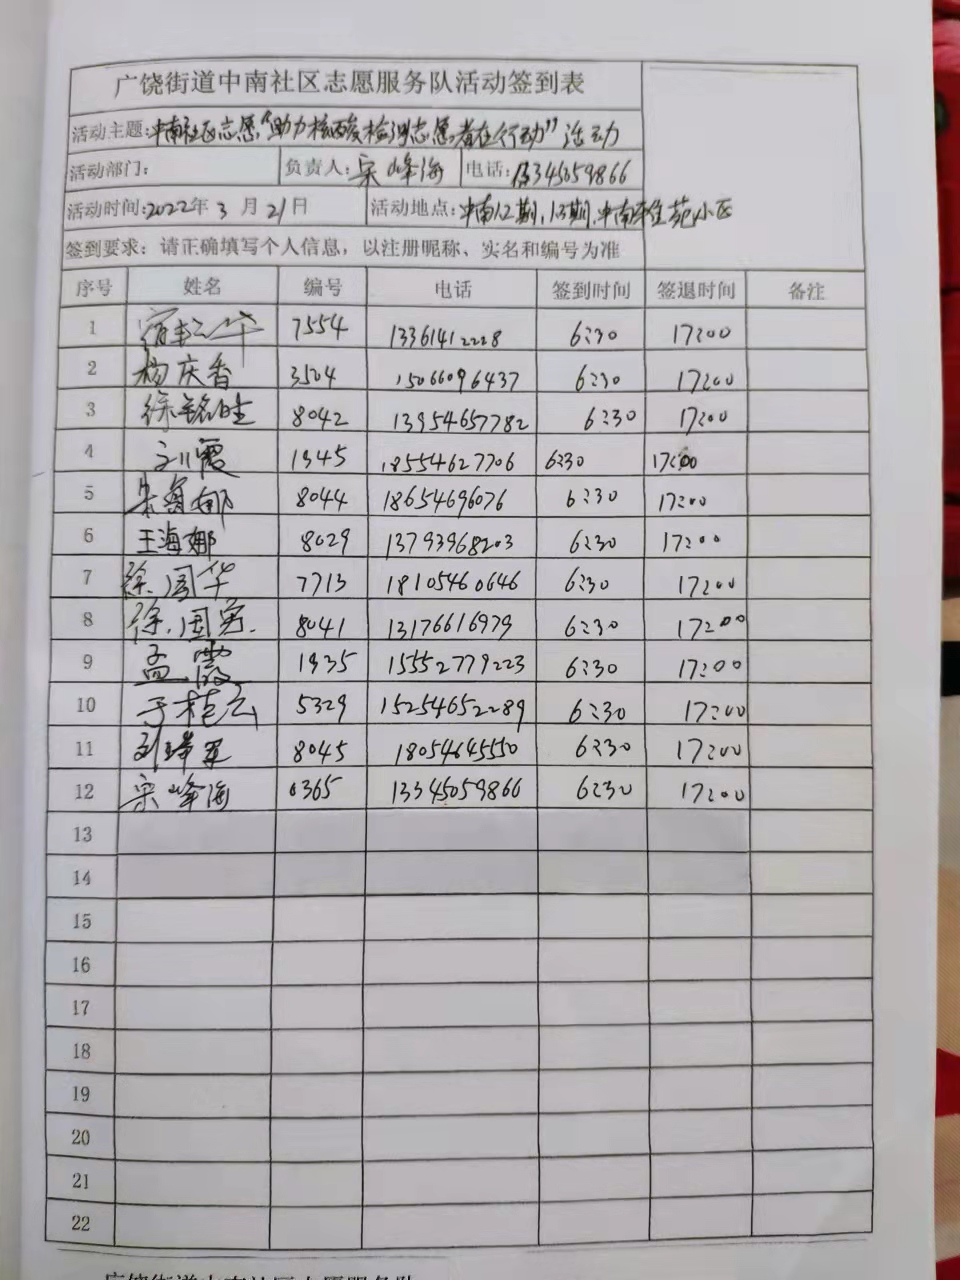 广饶街道中南社区志愿服务队活动签到表
活动主题:中南社区志愿"助力核酸检测志愿者在行动"活动
活动部门: 负责人:宋峰海 电话:13345059866
活动时间:2022年3月21日 活动地点:中南12期,13期,中南 苑小区
签到要求:请正确填写个人信息,以注册昵称、实名和编号为准
序号 姓名 编号 电话 签到时间 签退时间 备注
1 7554 13361412228 6:30 17:00
2 杨庆香 3504 15066096437 6:30 17:00
3 徐铭 8042 13954657782 6:30 17:00
4 刘霞 1945 18554627706 6:30 17:00
5 朱 娜 8044 18654696076 6:30 17:00
6 王海娜 8029 13793968203 6:30 17:00
7 徐国华 7713 18105460646 6:30 17:00
8 徐国勇 8041 13176616979 6:30 17:00
9 孟霞 1935 15552779223 6:30 17:00
10 于桂云 5329 15254652289 6:30 17:00
11 8045 18054645550 6:30 17:00
12 宋峰海 0365 13345059866 6:30 17:00
13
14
15
16
17
18
19
20
21
22
广饶街道中南社区志愿服务队